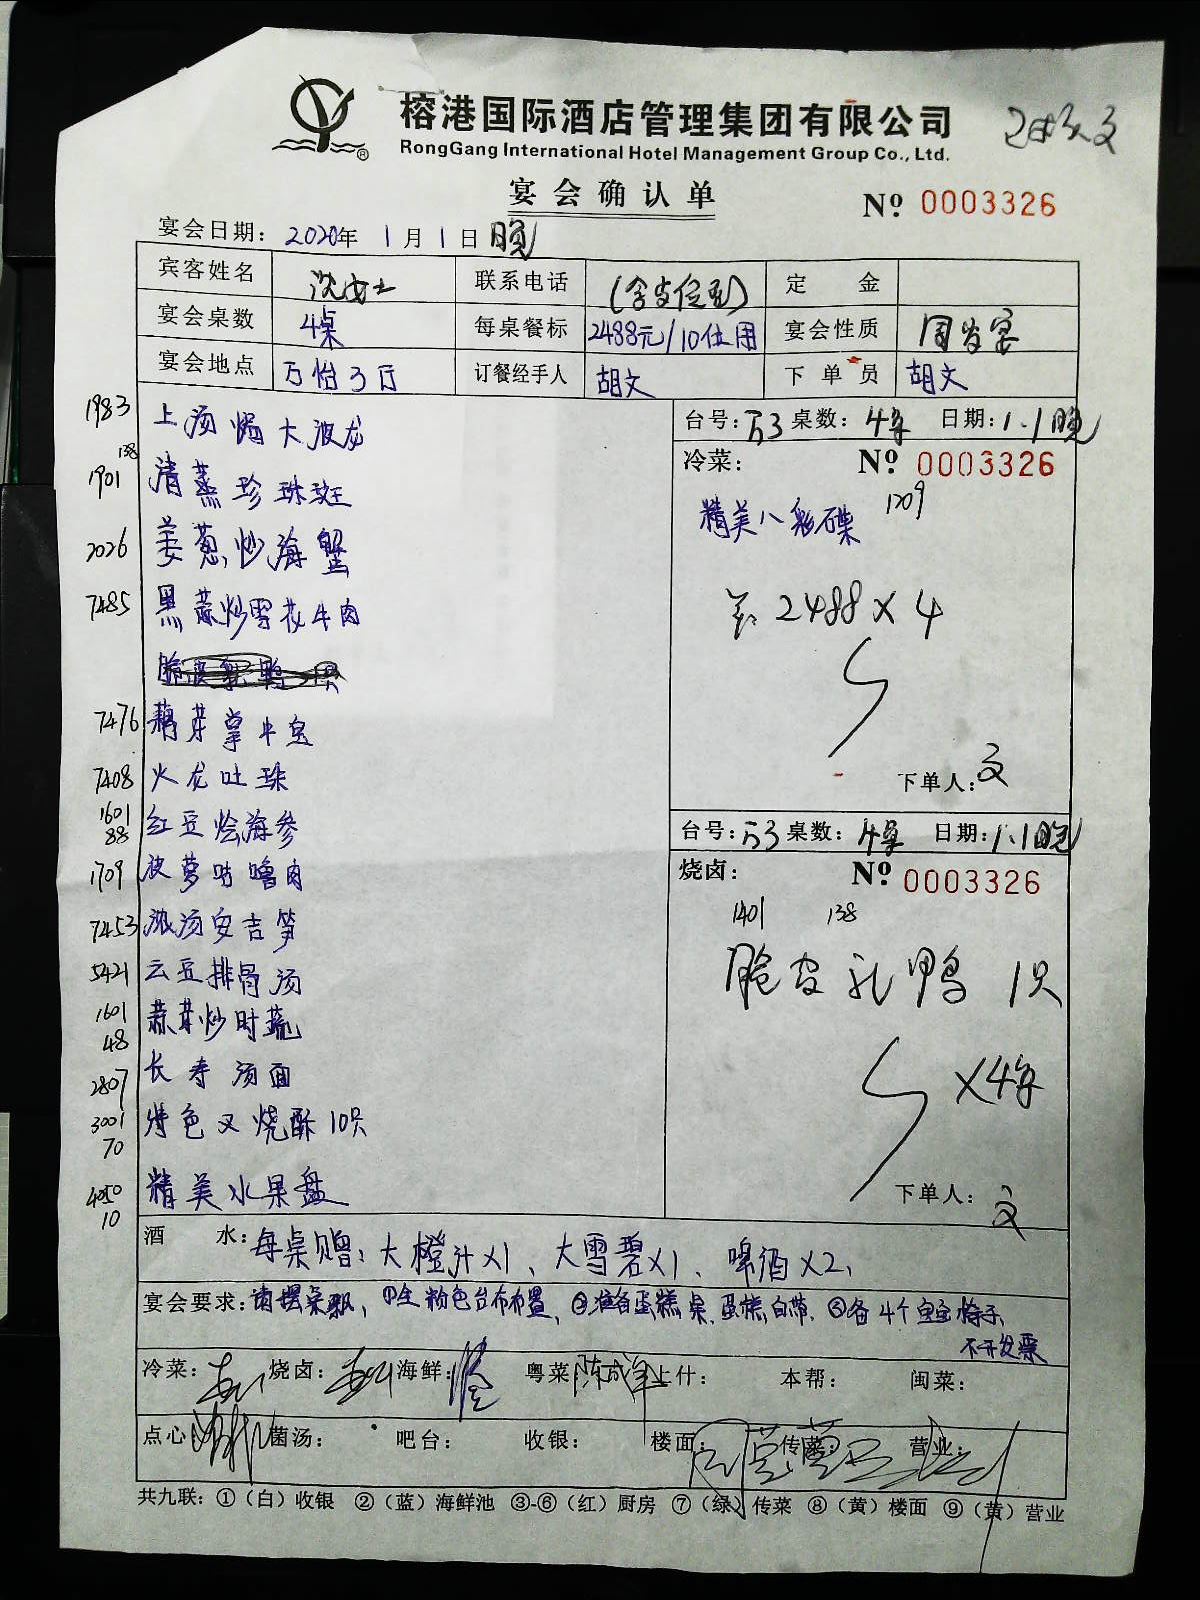 榕港国际酒店管理集团有限公司
RongGang International Hotel Management Group Co., Ltd.
宴会确认单
№ 0003326
宴会日期: 2020年 1月1日 晚
宾客姓名 沈女士 联系电话 定金
宴会桌数 4桌 每桌餐标 2488元/10位用 宴会性质 周岁宴
宴会地点 万怡3厅 订餐经手人 胡文 下单员 胡文
台号: 万3 桌数: 4桌 日期: 1.1晚
冷菜: № 0003326
精美八彩碟 1209
2488×4
下单人: 文
1983 上汤焗大波龙
138
1901 清蒸珍珠斑
2026 姜葱炒海蟹
7485 黑蒜炒雪花牛肉
7476
7408 火龙吐珠
1601
88 红豆烩海参
1709 菠萝咕噜肉
7453 浓汤安吉笋
5421 云豆排骨汤
1601
48 蒜茸炒时蔬
2807 长寿汤面
3001
70 特色叉烧酥10只
4050
10 精美水果盘
台号: 万3 桌数: 4桌 日期: 1.1晚
烧卤: № 0003326
1401 138
脆皮乳鸭 1只
×4桌
下单人: 文
酒水: 每桌赠: 大橙汁×1、大雪碧×1、啤酒×2、
宴会要求: 请摆桌飘, ①全粉色台布布置, ②准备蛋糕桌、蛋糕自带, ③备4个宝宝椅子,
不开发票
冷菜: 烧卤: 海鲜: 粤菜: 上什: 本帮: 闽菜:
点心: 菌汤: 吧台: 收银: 楼面: 传菜: 营业:
共九联: ①(白)收银 ②(蓝)海鲜池 ③-⑥(红)厨房 ⑦(绿)传菜 ⑧(黄)楼面 ⑨(黄)营业